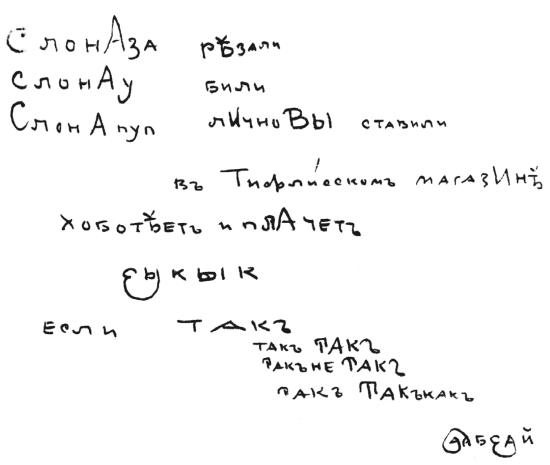 СлонАза рѣзали
слонАу били
СлонА пуп лИчноВЫ ставили
въ Тифлисскомъ магазИнѢ
хоботѣетъ и плАчетъ
ЕСЛИ ТАКЪ
ТАКЪ ТАКЪ
ТАКЪ НЕ ТАКЪ
ТАКЪ ТАКЪКАКЪ